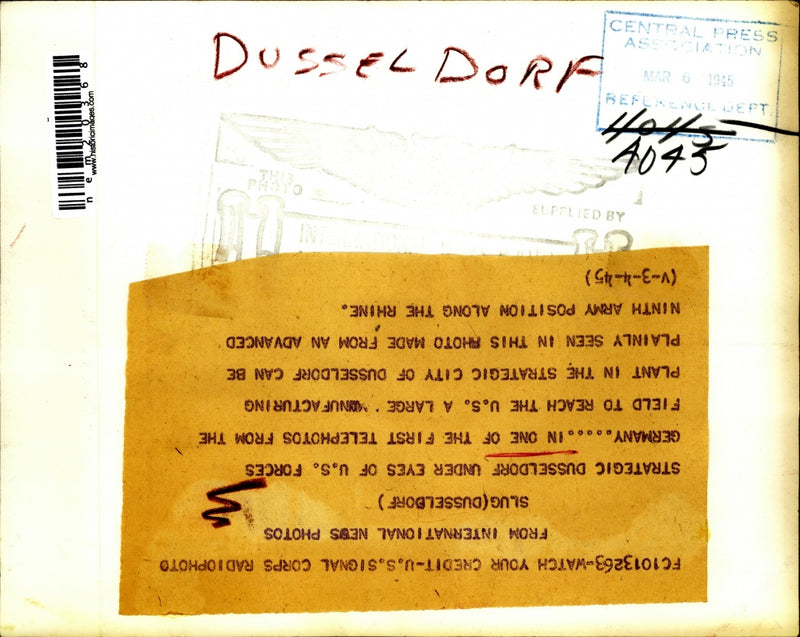 DUSSELDORF
CENTRAL PRESS
ASSOCIATION
MAR 6 1945
REFERENCE DEPT.
4045
A045
nem20368
www.historicimages.com
THIS
PHOTO
SUPPLIED BY
FC1013263-WATCH YOUR CREDIT-U.S.SIGNAL CORPS RADIOPHOTO
FROM INTERNATIONAL NEWS PHOTOS
SLUG(DUSSELDORF)
STRATEGIC DUSSELDORF UNDER EYES OF U.S. FORCES
GERMANY......IN ONE OF THE FIRST TELEPHOTOS FROM THE
FIELD TO REACH THE U.S. A LARGE MANUFACTURING
PLANT IN THE STRATEGIC CITY OF DUSSELDORF CAN BE
PLAINLY SEEN IN THIS PHOTO MADE FROM AN ADVANCED
NINTH ARMY POSITION ALONG THE RHINE.
(V-3-4-45)